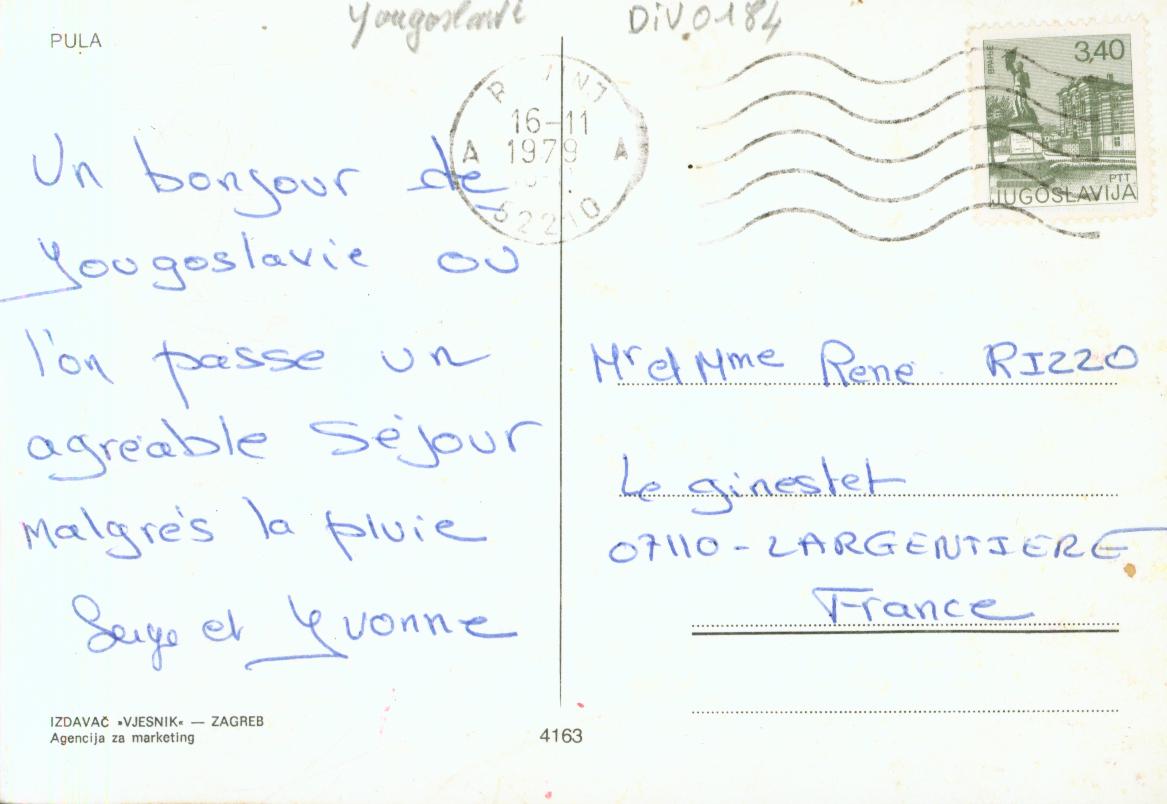 Yougoslavie
DIV 0184
PULA
16-11
1979
A A
52210
ВРАЊЕ
3,40
PTT
JUGOSLAVIJA
Un bonjour de
Yougoslavie ou
l'on passe un
agréable séjour
malgrés la pluie
Serge et Yvonne
Mr et Mme René RIZZO
Le ginestet
07110 - LARGENTIERE
France
IZDAVAČ »VJESNIK« — ZAGREB
Agencija za marketing
4163